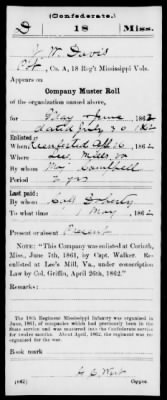 (Confederate.)
D 18 Miss.
J. W. Davis
Pvt, Co. A, 18 Reg't Mississippi Vols.
Appears on
Company Muster Roll
of the organization named above,
for May & June 1862
dated July 30 1862
Enlisted:
When Reenlisted Apl 26, 1862
Where Lees Mills, Va
By whom Maj Campbell
Period 2 yrs
Last paid:
By whom
To what time 1 May, 1862
Present or absent Present
NOTE: "This Company was enlisted at Corinth,
Miss., June 7th, 1861, by Capt. Walker. Re-
enlisted at Lee's Mill, Va., under conscription
Law by Col. Griffin, April 26th, 1862."
Remarks:
The 18th Regiment Mississippi Infantry was organized in
June, 1861, of companies which had previously been in the
State service and was mustered into the Confederate service
for twelve months. About April, 1862, the regiment was
Book mark
(642) Copyist.